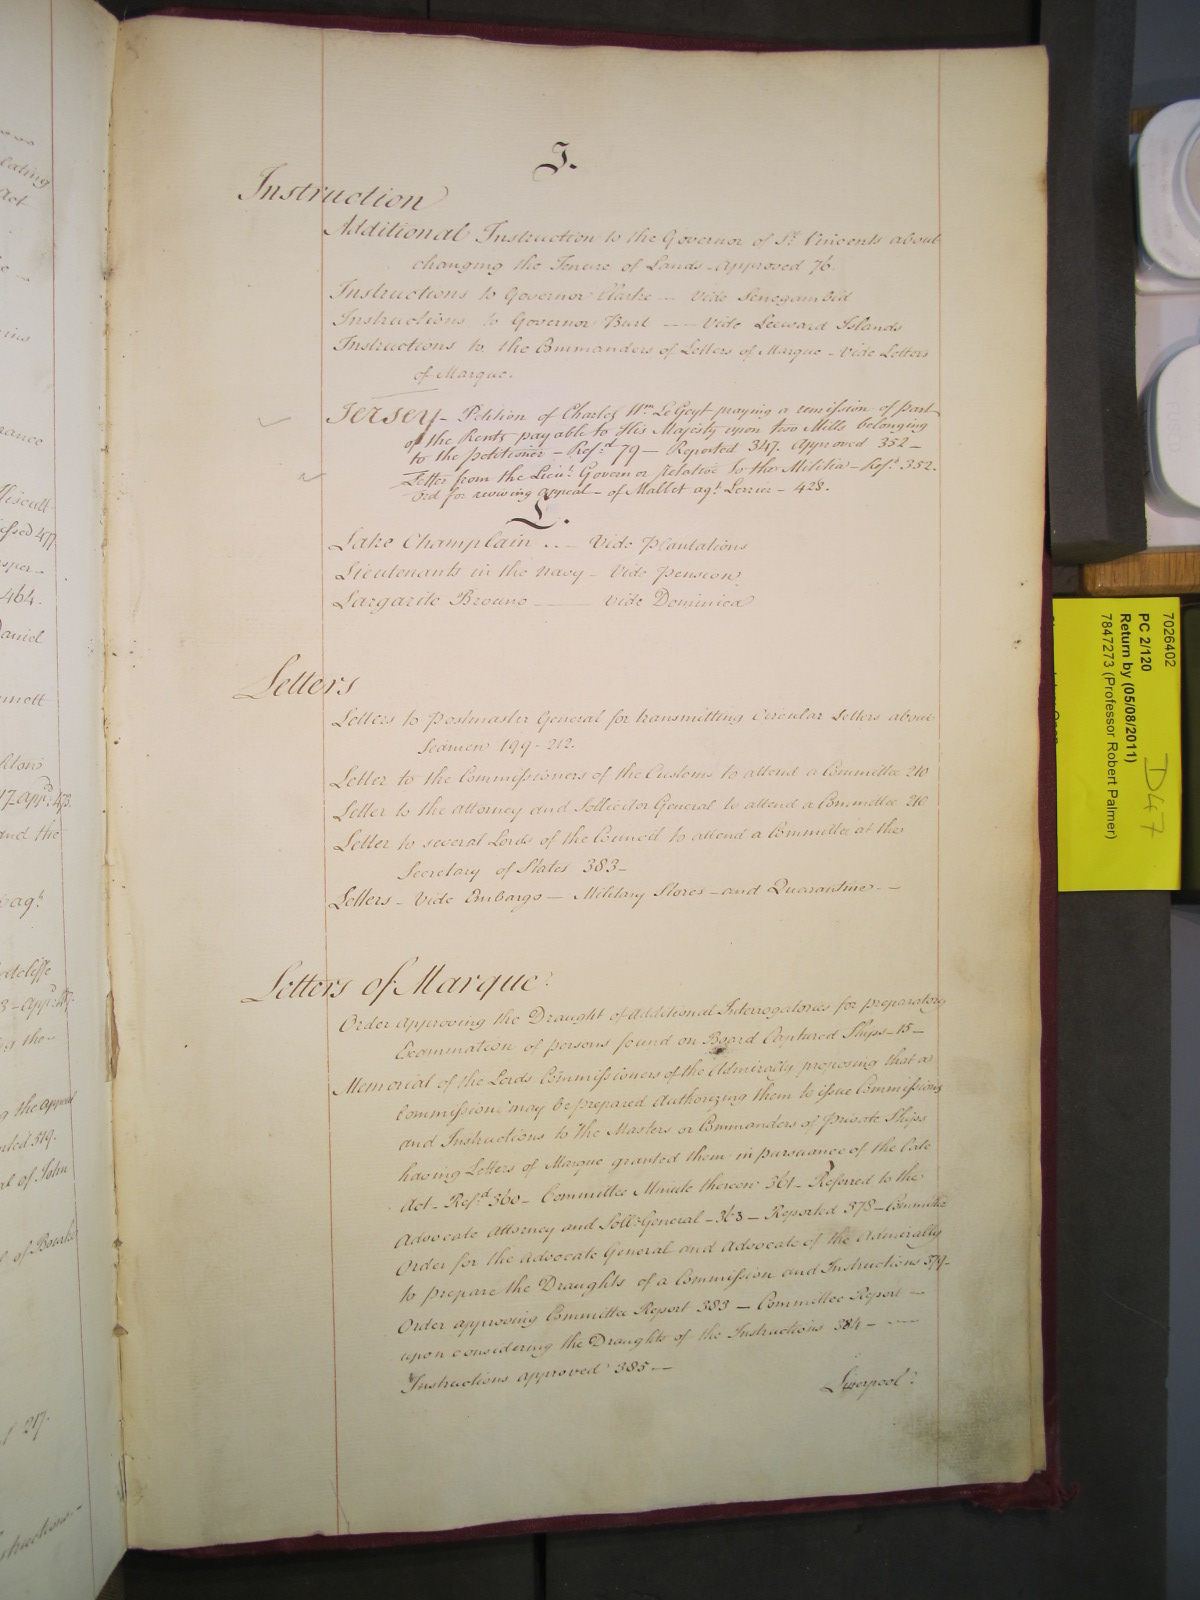 I.
Instruction
Additional Instruction to the Governor of St. Vincents about
changing the Tenure of Lands - approved 76.
Instructions to Governor Clarke -- Vide Senegambia
Instructions to Governor Burt --- Vide Leeward Islands
Instructions to the Commanders of Letters of Marque - Vide Letters
of Marque.
Jersey - Petition of Charles Wm. Le Geyt praying a remission of part
of the Rents payable to His Majesty upon two Mills belonging
to the petitioner - Refd. 79 - Reported 347. Approved 352 -
Letter from the Lieut. Governor relative to the Militia - Refd. 352.
Ord for reviving appeal - of Mallet agt. Lerrier - 428.
L.
Lake Champlain .. - Vide Plantations
Lieutenants in the Navy - Vide Pension
Largarite Browne --- Vide Dominica
Letters
Letters to Postmaster General for transmitting Circular Letters about
Seamen 199 - 212.
Letter to the Commissioners of the Customs to attend a Committee 210
Letter to the Attorney and Sollicitor General to attend a Committee 210
Letter to several Lords of the Council to attend a Committee at the
Secretary of States 383 -
Letters - Vide Embargo - Military Stores - and Quarantine - -
Letters of Marque
Order approving the Draught of Additional Interrogatories for preparatory
Examination of persons found on Board Captured Ships - 15 -
Memorial of the Lords Commissioners of the Admiralty proposing that a
Commission may be prepared Authorizing them to issue Commissions
and Instructions to the Masters or Commanders of private Ships
having Letters of Marque granted them in pursuance of the late
Act - Refd. 360 - Committee Minute thereon 361 - Referred to the
Advocate Attorney and Sollr. General - 363 - Reported 378 - Committee
Order for the Advocate General and Advocate of the Admiralty
to prepare the Draughts of a Commission and Instructions 379 -
Order approving Committee Report 383 - Committee Report -
upon considering the Draughts of the Instructions 384 - ---
Instructions approved 385 --
Liverpool
7026402
PC 2/120
Return by (05/08/2011)
7847273 (Professor Robert Palmer)
D47